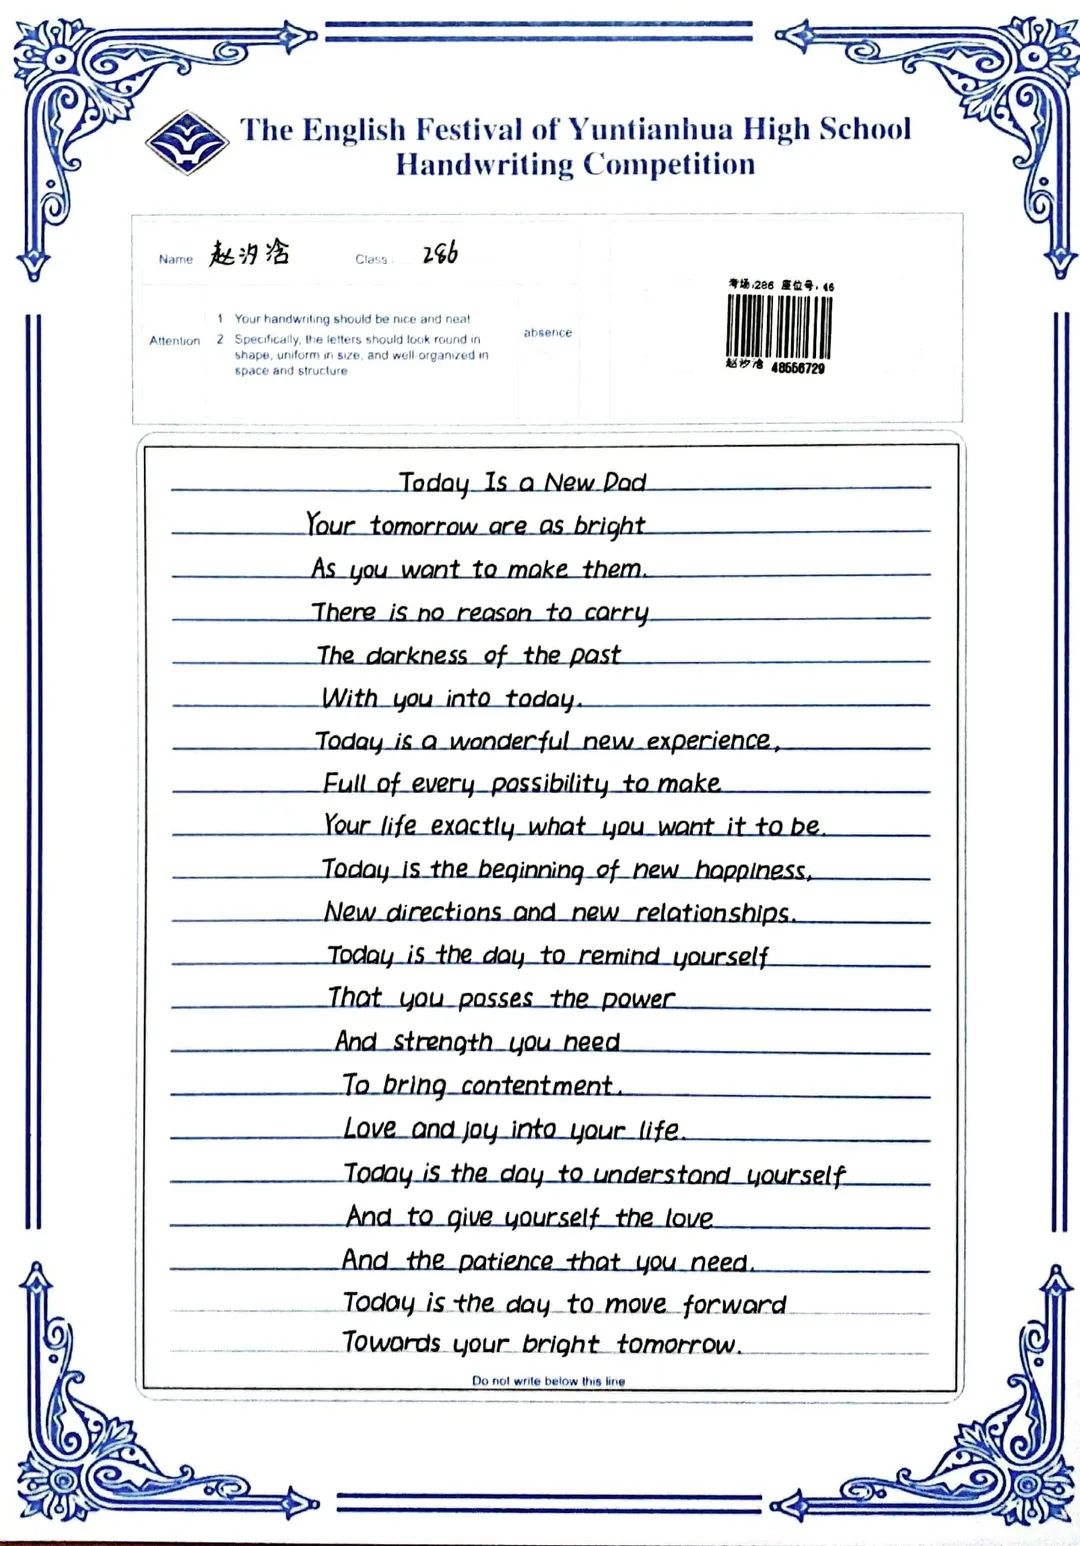 The English Festival of Yuntianhua High School
Handwriting Competition
Name 赵汐浛 Class: 286
考场:286 座位号:46
Attention
1 Your handwriting should be nice and neat
2 Specifically, the letters should look round in
shape, uniform in size, and well organized in
space and structure
absence
赵汐浛 48556729
Today Is a New Dad
Your tomorrow are as bright
As you want to make them.
There is no reason to carry
The darkness of the past
With you into today.
Today is a wonderful new experience,
Full of every possibility to make
Your life exactly what you want it to be.
Today is the beginning of new happiness,
New directions and new relationships.
Today is the day to remind yourself
That you posses the power
And strength you need
To bring contentment.
Love and joy into your life.
Today is the day to understand yourself
And to give yourself the love
And the patience that you need.
Today is the day to move forward
Towards your bright tomorrow.
Do not write below this line